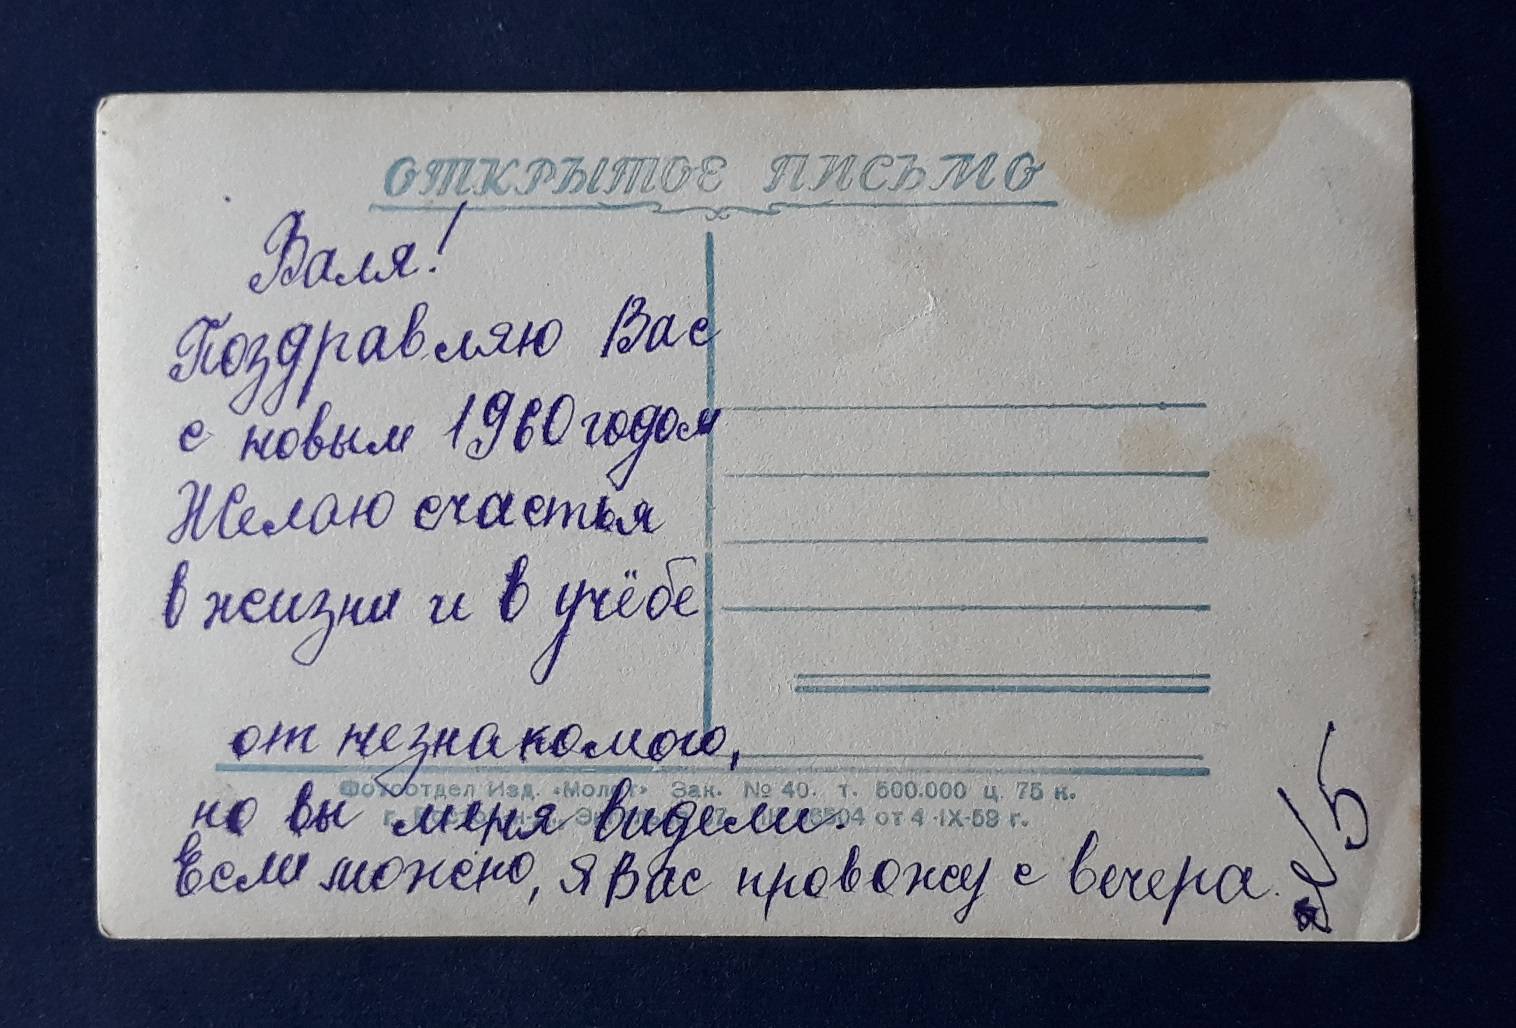 ОТКРЫТОЕ ПИСЬМО
Валя!
Поздравляю Вас
с новым 1960 годом
Желаю счастья
в жизни и в учёбе
от незнакомого,
Фотоотдел Изд. «Молот» Зак. № 40. т. 500.000 ц. 75 к.
но вы меня видели.
от 4-IX-59 г.
Если можно, я Вас провожу с вечера.